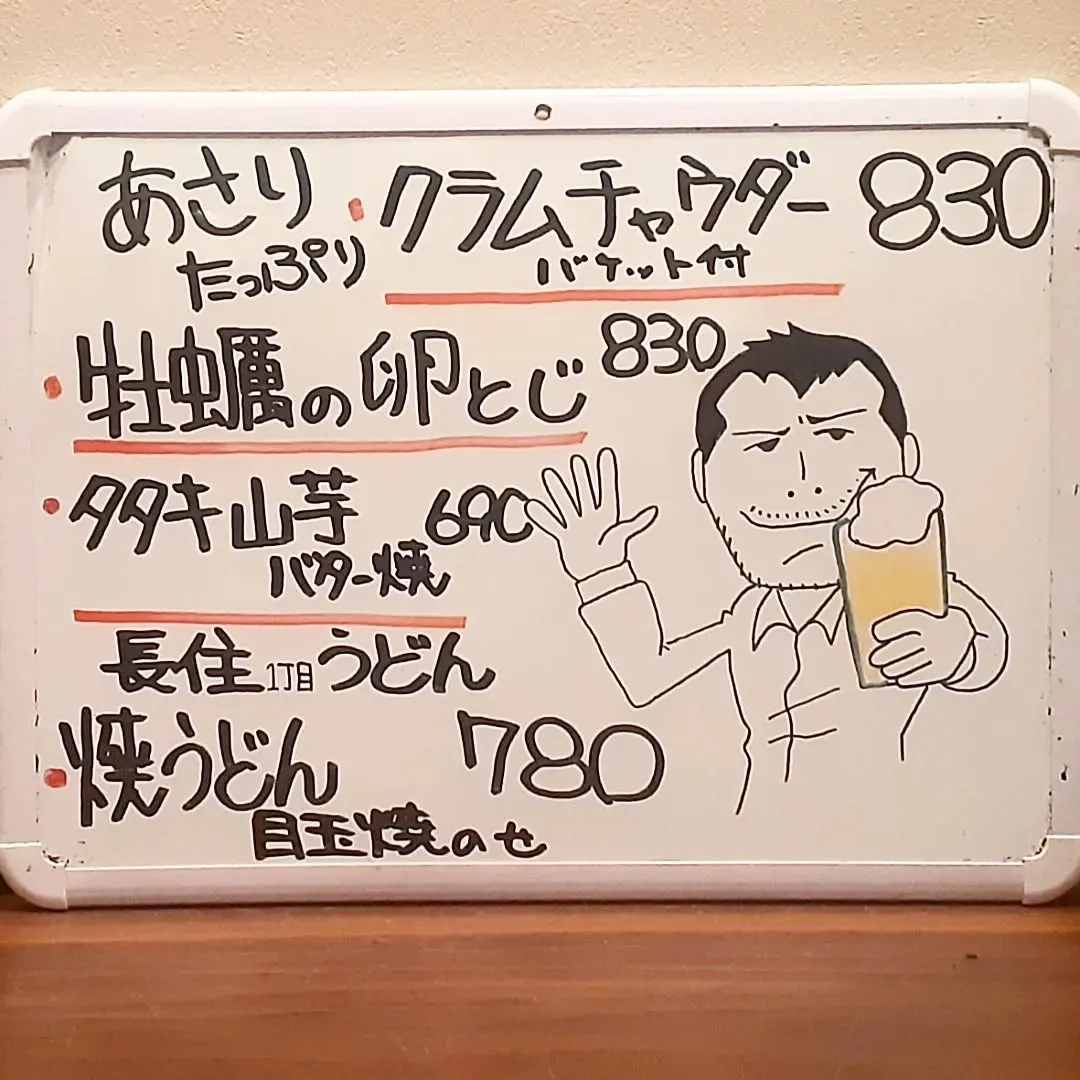 あさり
たっぷり
・クラムチャウダー 830
バケット付
・牡蠣の卵とじ 830
・タタキ山芋 690
バター焼
長住1丁目うどん
・焼うどん 780
目玉焼のせ